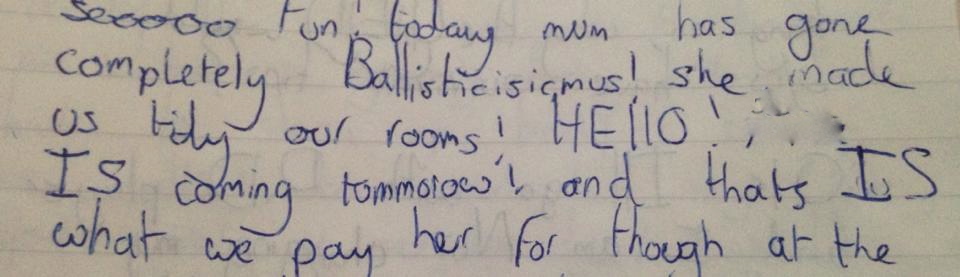 seoooo fun! today mum has gone
completely Ballisticisicmus! she made
us tidy our rooms! HEllO!
IS coming tommorow! and thats IS
what we pay her for though at the